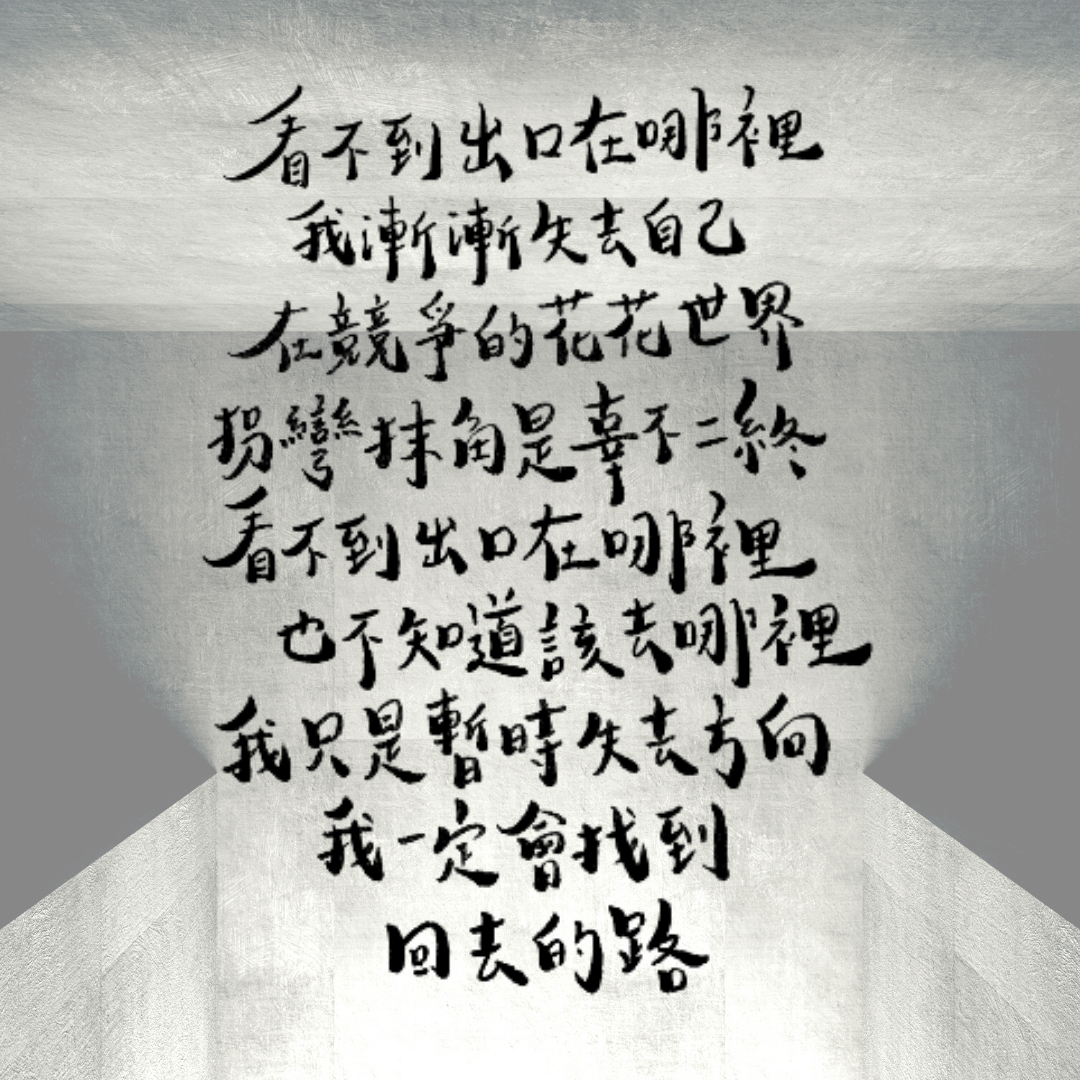 看不到出口在哪裡
我漸漸失去自己
在競爭的花花世界
拐彎抹角是辜不二終
看不到出口在哪裡
也不知道該去哪裡
我只是暫時失去方向
我一定會找到
回去的路